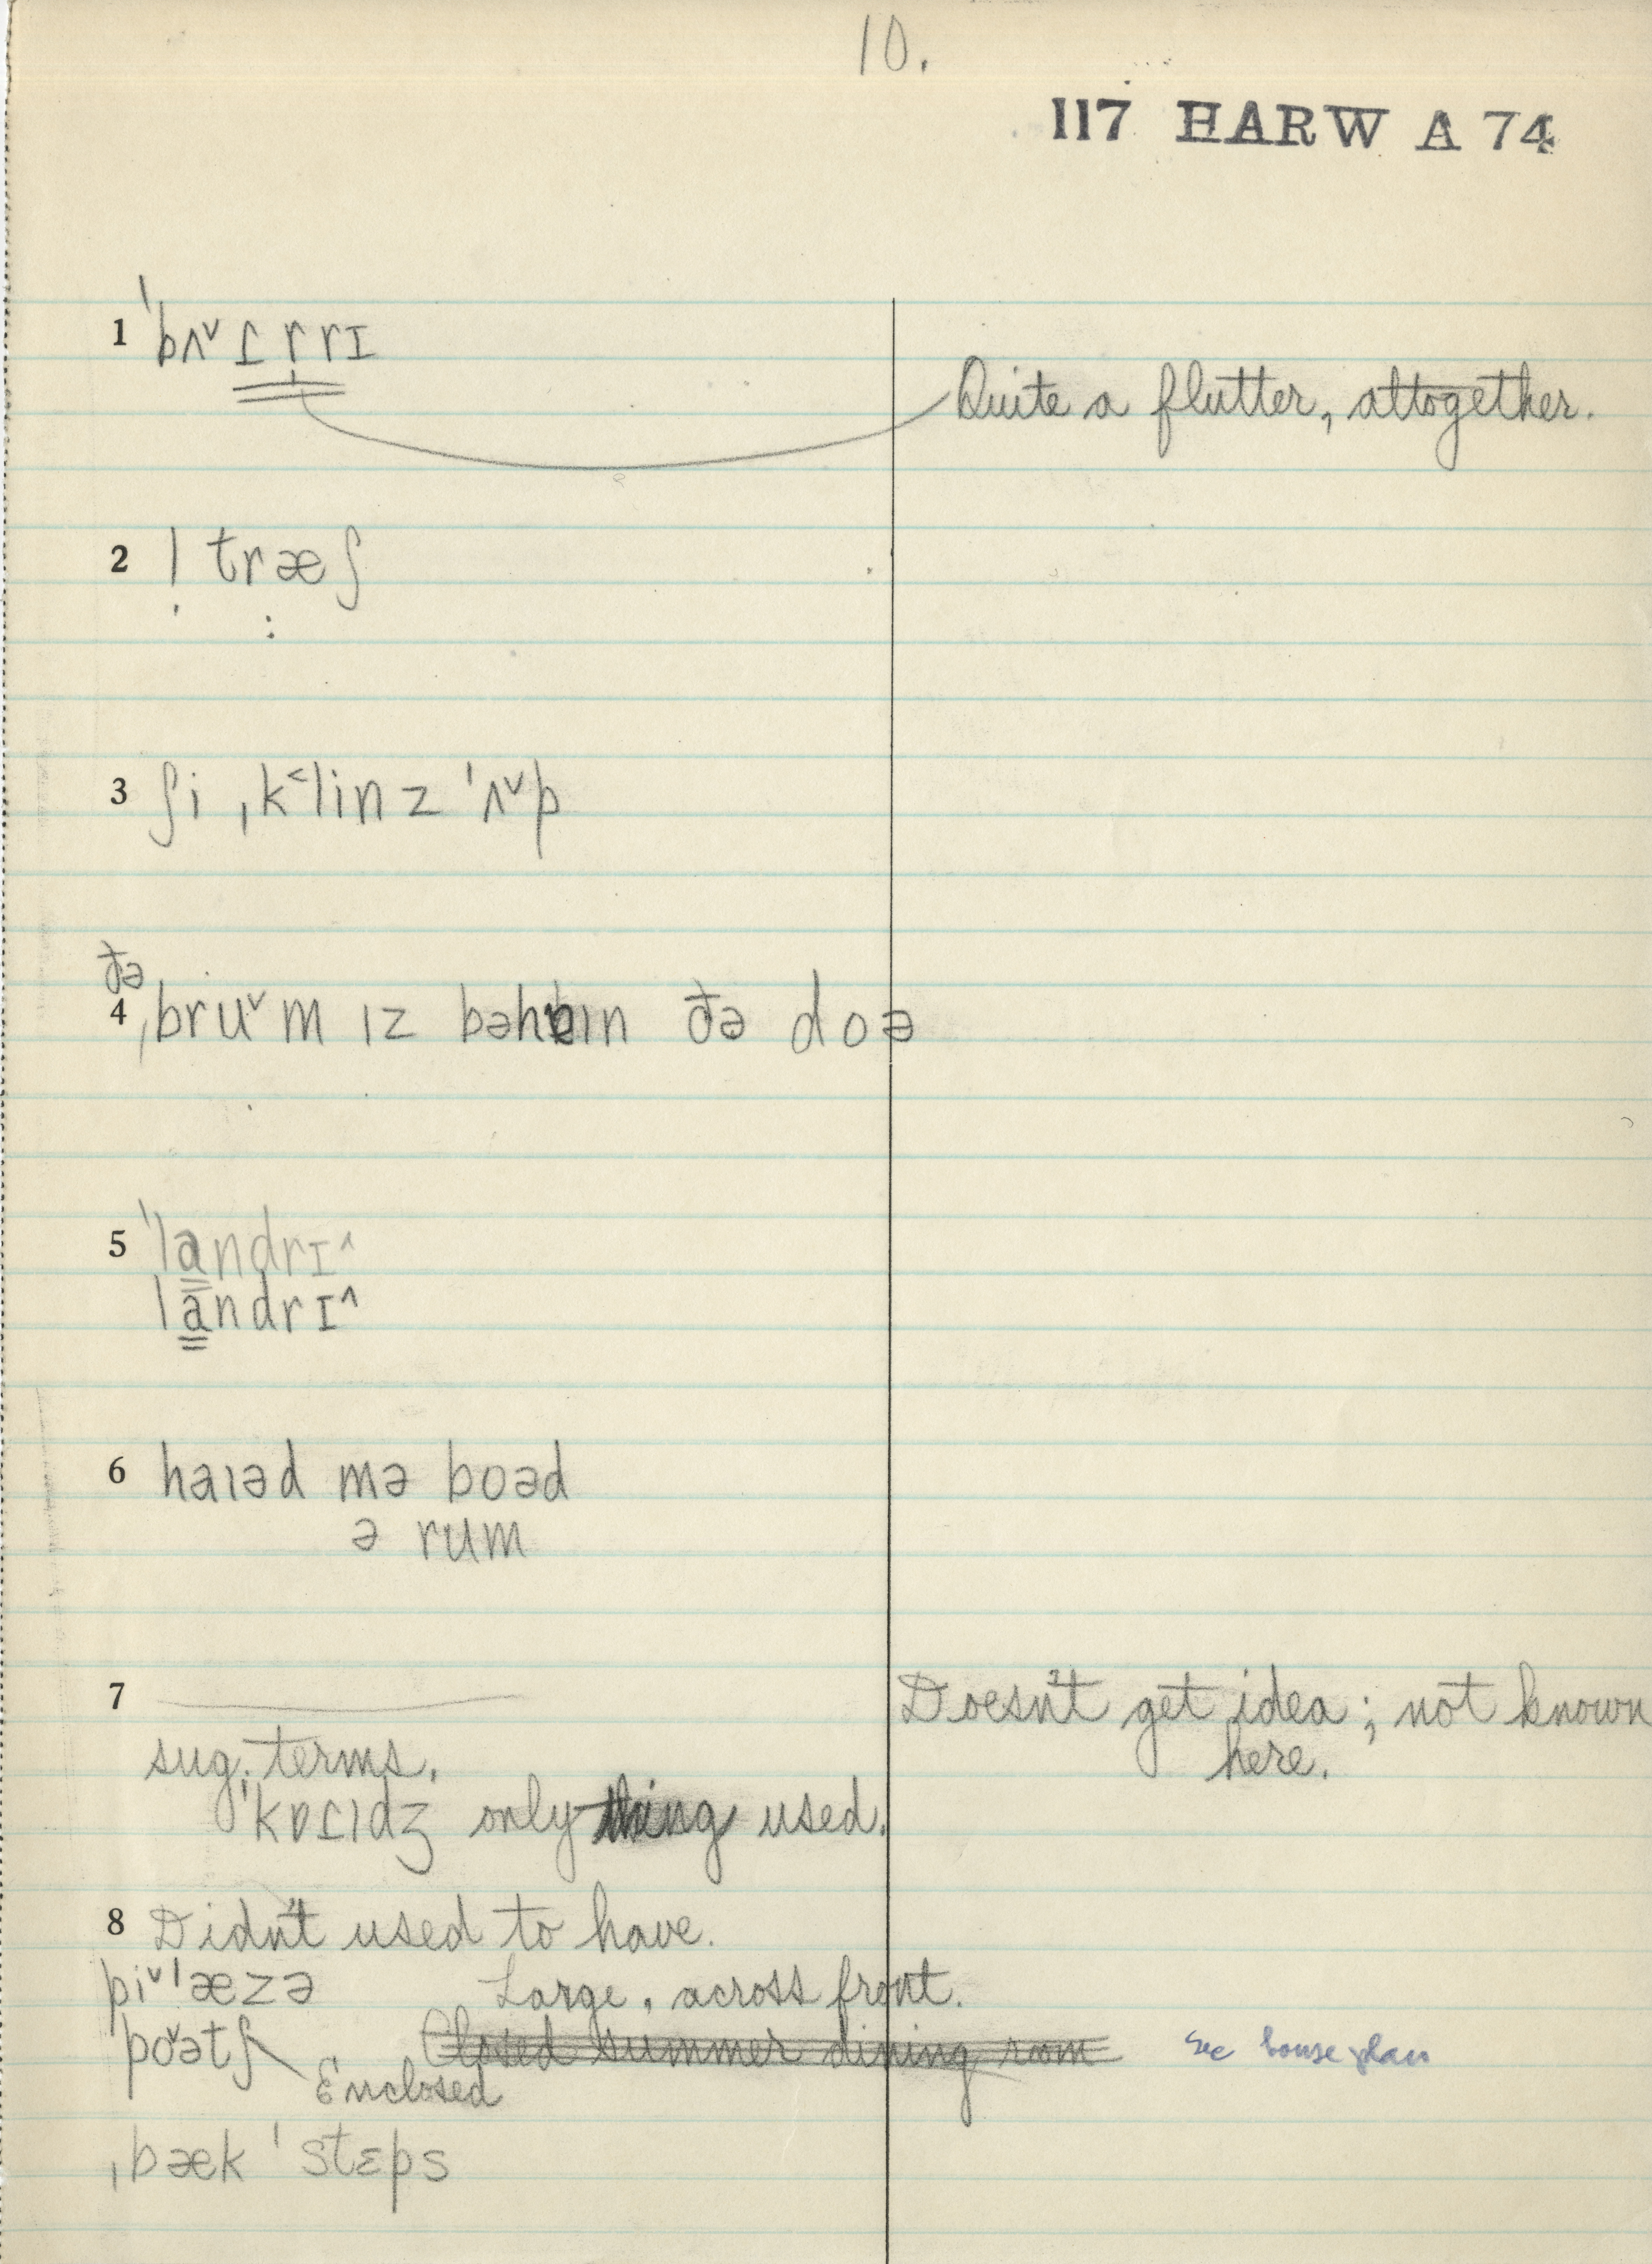 10.
117 HARW A 74
1 ˈbʌ˅ɾ r rɪ
Quite a flutter, altogether.
2 | træʃ
3 ʃi ˌk˂linz ˈʌ˅p
ðə
4 ˌbru˅m ɪz bəhɪn ðə doə
5 ˈlandrɪ^
landrɪ^
6 haɪəd mə boəd
ə rum
7 Doesn't get idea; not known
here.
sug. terms.
ˈkɒɾɪdʒ only thing used.
8 Didn't used to have.
pi˅ˈæzə Large, across front.
po˅ətʃ Closed summer dining room see house plan
Enclosed
ˌbæk ˈstɛps